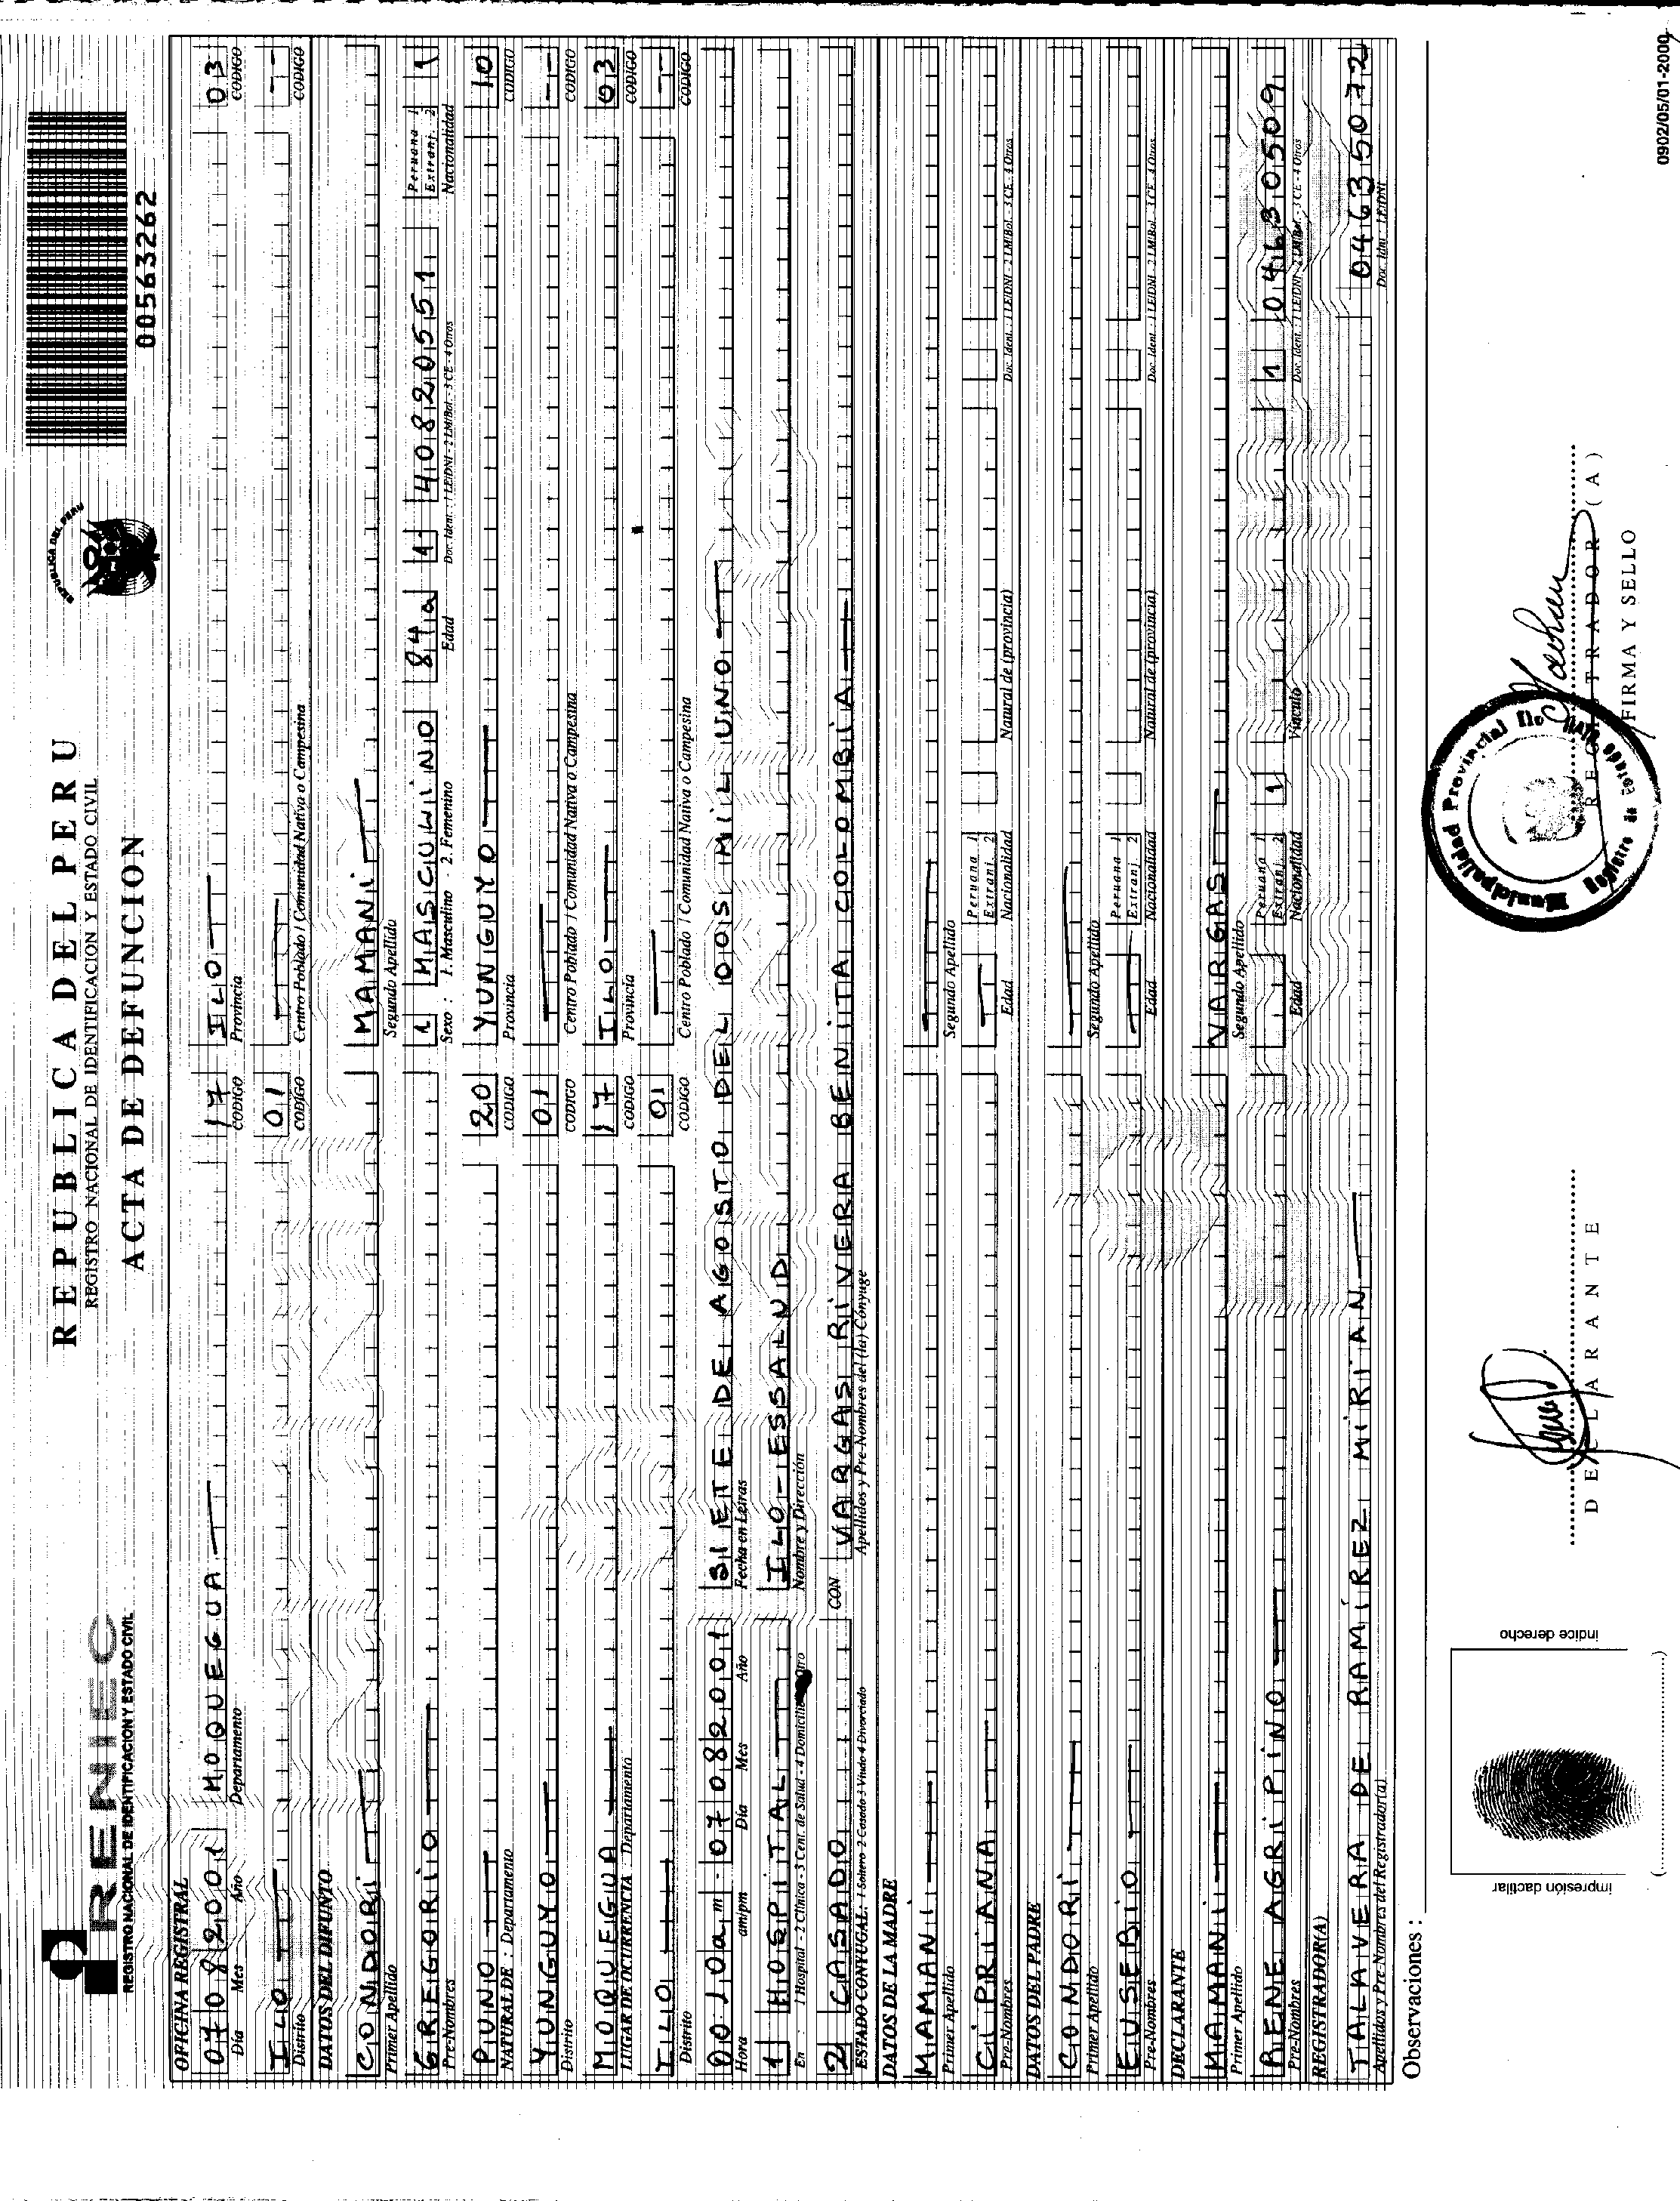 RENIEC
REGISTRO NACIONAL DE IDENTIFICACION Y ESTADO CIVIL
REPUBLICA DEL PERU
REGISTRO NACIONAL DE IDENTIFICACION Y ESTADO CIVIL
ACTA DE DEFUNCION
REPUBLICA DEL PERU
00563262
OFICINA REGISTRAL
07 08 2001 MOQUEGUA 17 ILO 03
Día Mes Año Departamento CODIGO Provincia CODIGO
ILO 01 --
Distrito CODIGO Centro Poblado / Comunidad Nativa o Campesina CODIGO
DATOS DEL DIFUNTO
CONDORI MAMANI
Primer Apellido Segundo Apellido
GREGORIO 1 MASCULINO 84 a 1 40820551 Peruana 1 Extranj. 2 1
Pre-Nombres Sexo : 1. Masculino - 2. Femenino Edad Doc. Ident. : 1 LE/DNI - 2 LM/Bol. - 3 CE - 4 Otros Nacionalidad
PUNO 20 YUNGUYO 10
NATURAL DE : Departamento CODIGO Provincia CODIGO
YUNGUYO 01 --
Distrito CODIGO Centro Poblado / Comunidad Nativa o Campesina CODIGO
MOQUEGUA 17 ILO 03
LUGAR DE OCURRENCIA : Departamento CODIGO Provincia CODIGO
ILO 01 --
Distrito CODIGO Centro Poblado / Comunidad Nativa o Campesina CODIGO
am 07 08 2001 SIETE DE AGOSTO DEL DOS MIL UNO
Hora am/pm Día Mes Año Fecha en Letras
1 HOSPITAL ILO-ESSALUD
En : 1 Hospital - 2 Clínica - 3 Cent. de Salud - 4 Domicilio Otro Nombre y Dirección
2 CASADO CON VARGAS RIVERA BENITA COLOMBIA
ESTADO CONYUGAL: 1 Soltero 2 Casado 3 Viudo 4 Divorciado Apellidos y Pre-Nombres del (la) Cónyuge
DATOS DE LA MADRE
MAMANI
Primer Apellido Segundo Apellido
CIPRIANA Peruana 1 Extranj. 2
Pre-Nombres Edad Nacionalidad Natural de (provincia) Doc. Ident. : 1 LE/DNI - 2 LM/Bol. - 3 CE - 4 Otros
DATOS DEL PADRE
CONDORI
Primer Apellido Segundo Apellido
EUSEBIO Peruana 1 Extranj. 2
Pre-Nombres Edad Nacionalidad Natural de (provincia) Doc. Ident. : 1 LE/DNI - 2 LM/Bol. - 3 CE - 4 Otros
DECLARANTE
MAMANI VARGAS
Primer Apellido Segundo Apellido
RENE AGRIPINO Peruana 1 Extranj. 2 1 1 04630509
Pre-Nombres Edad Nacionalidad Vínculo Doc. Ident. : 1 LE/DNI - 2 LM/Bol. - 3 CE - 4 Otros
REGISTRADOR(A)
TALAVERA DE RAMIREZ MIRIAN 04635072
Apellidos y Pre-Nombres del Registrador(a) Doc. Iden. : LE/DNI
Observaciones :
impresión dactilar
índice derecho
DECLARANTE
Municipalidad Provincial Ilo
Registro de
REGISTRADOR (A)
FIRMA Y SELLO
0902/05/01-2000